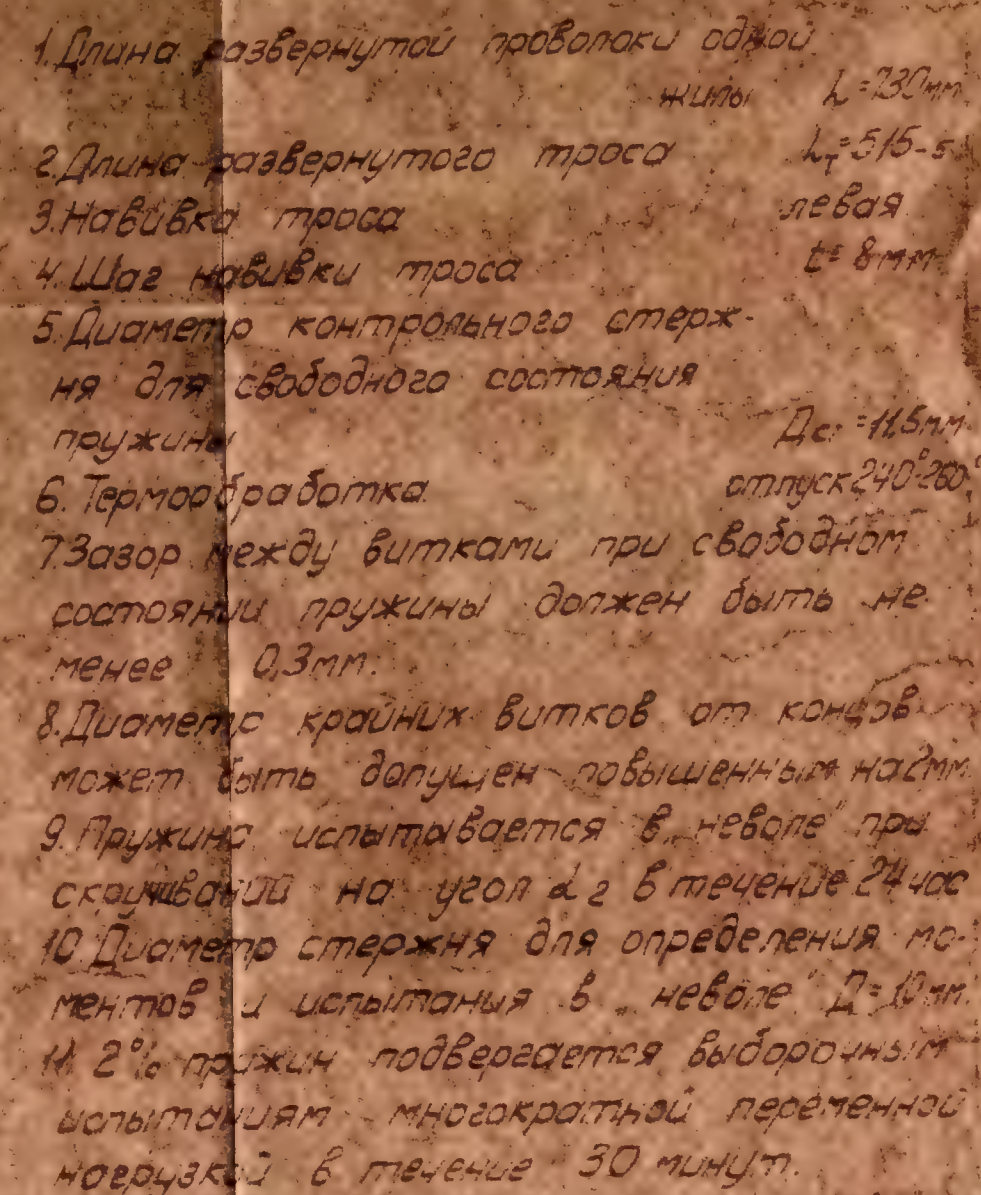 1. Длина развернутой проволоки одной
жилы L=730мм
2. Длина развернутого троса Lт=515-5
3. Навивка троса левая
4. Шаг навивки троса t=8мм
5. Диаметр контрольного стерж-
ня для свободного состояния
пружины Дс=11,5мм
6. Термообработка отпуск 240°-260°
7. Зазор между витками при свободном
состоянии пружины должен быть не
менее 0,3мм.
8. Диаметр крайних витков от концов
может быть допущен повышенным на 2мм
9. Пружина испытывается в „неволе" при
скручивании на угол α2 в течение 24 час
10. Диаметр стержня для определения мо-
ментов и испытания в „неволе" Д=10мм.
11. 2% пружин подвергается выборочным
испытаниям многократной переменной
нагрузкой в течение 30 минут.